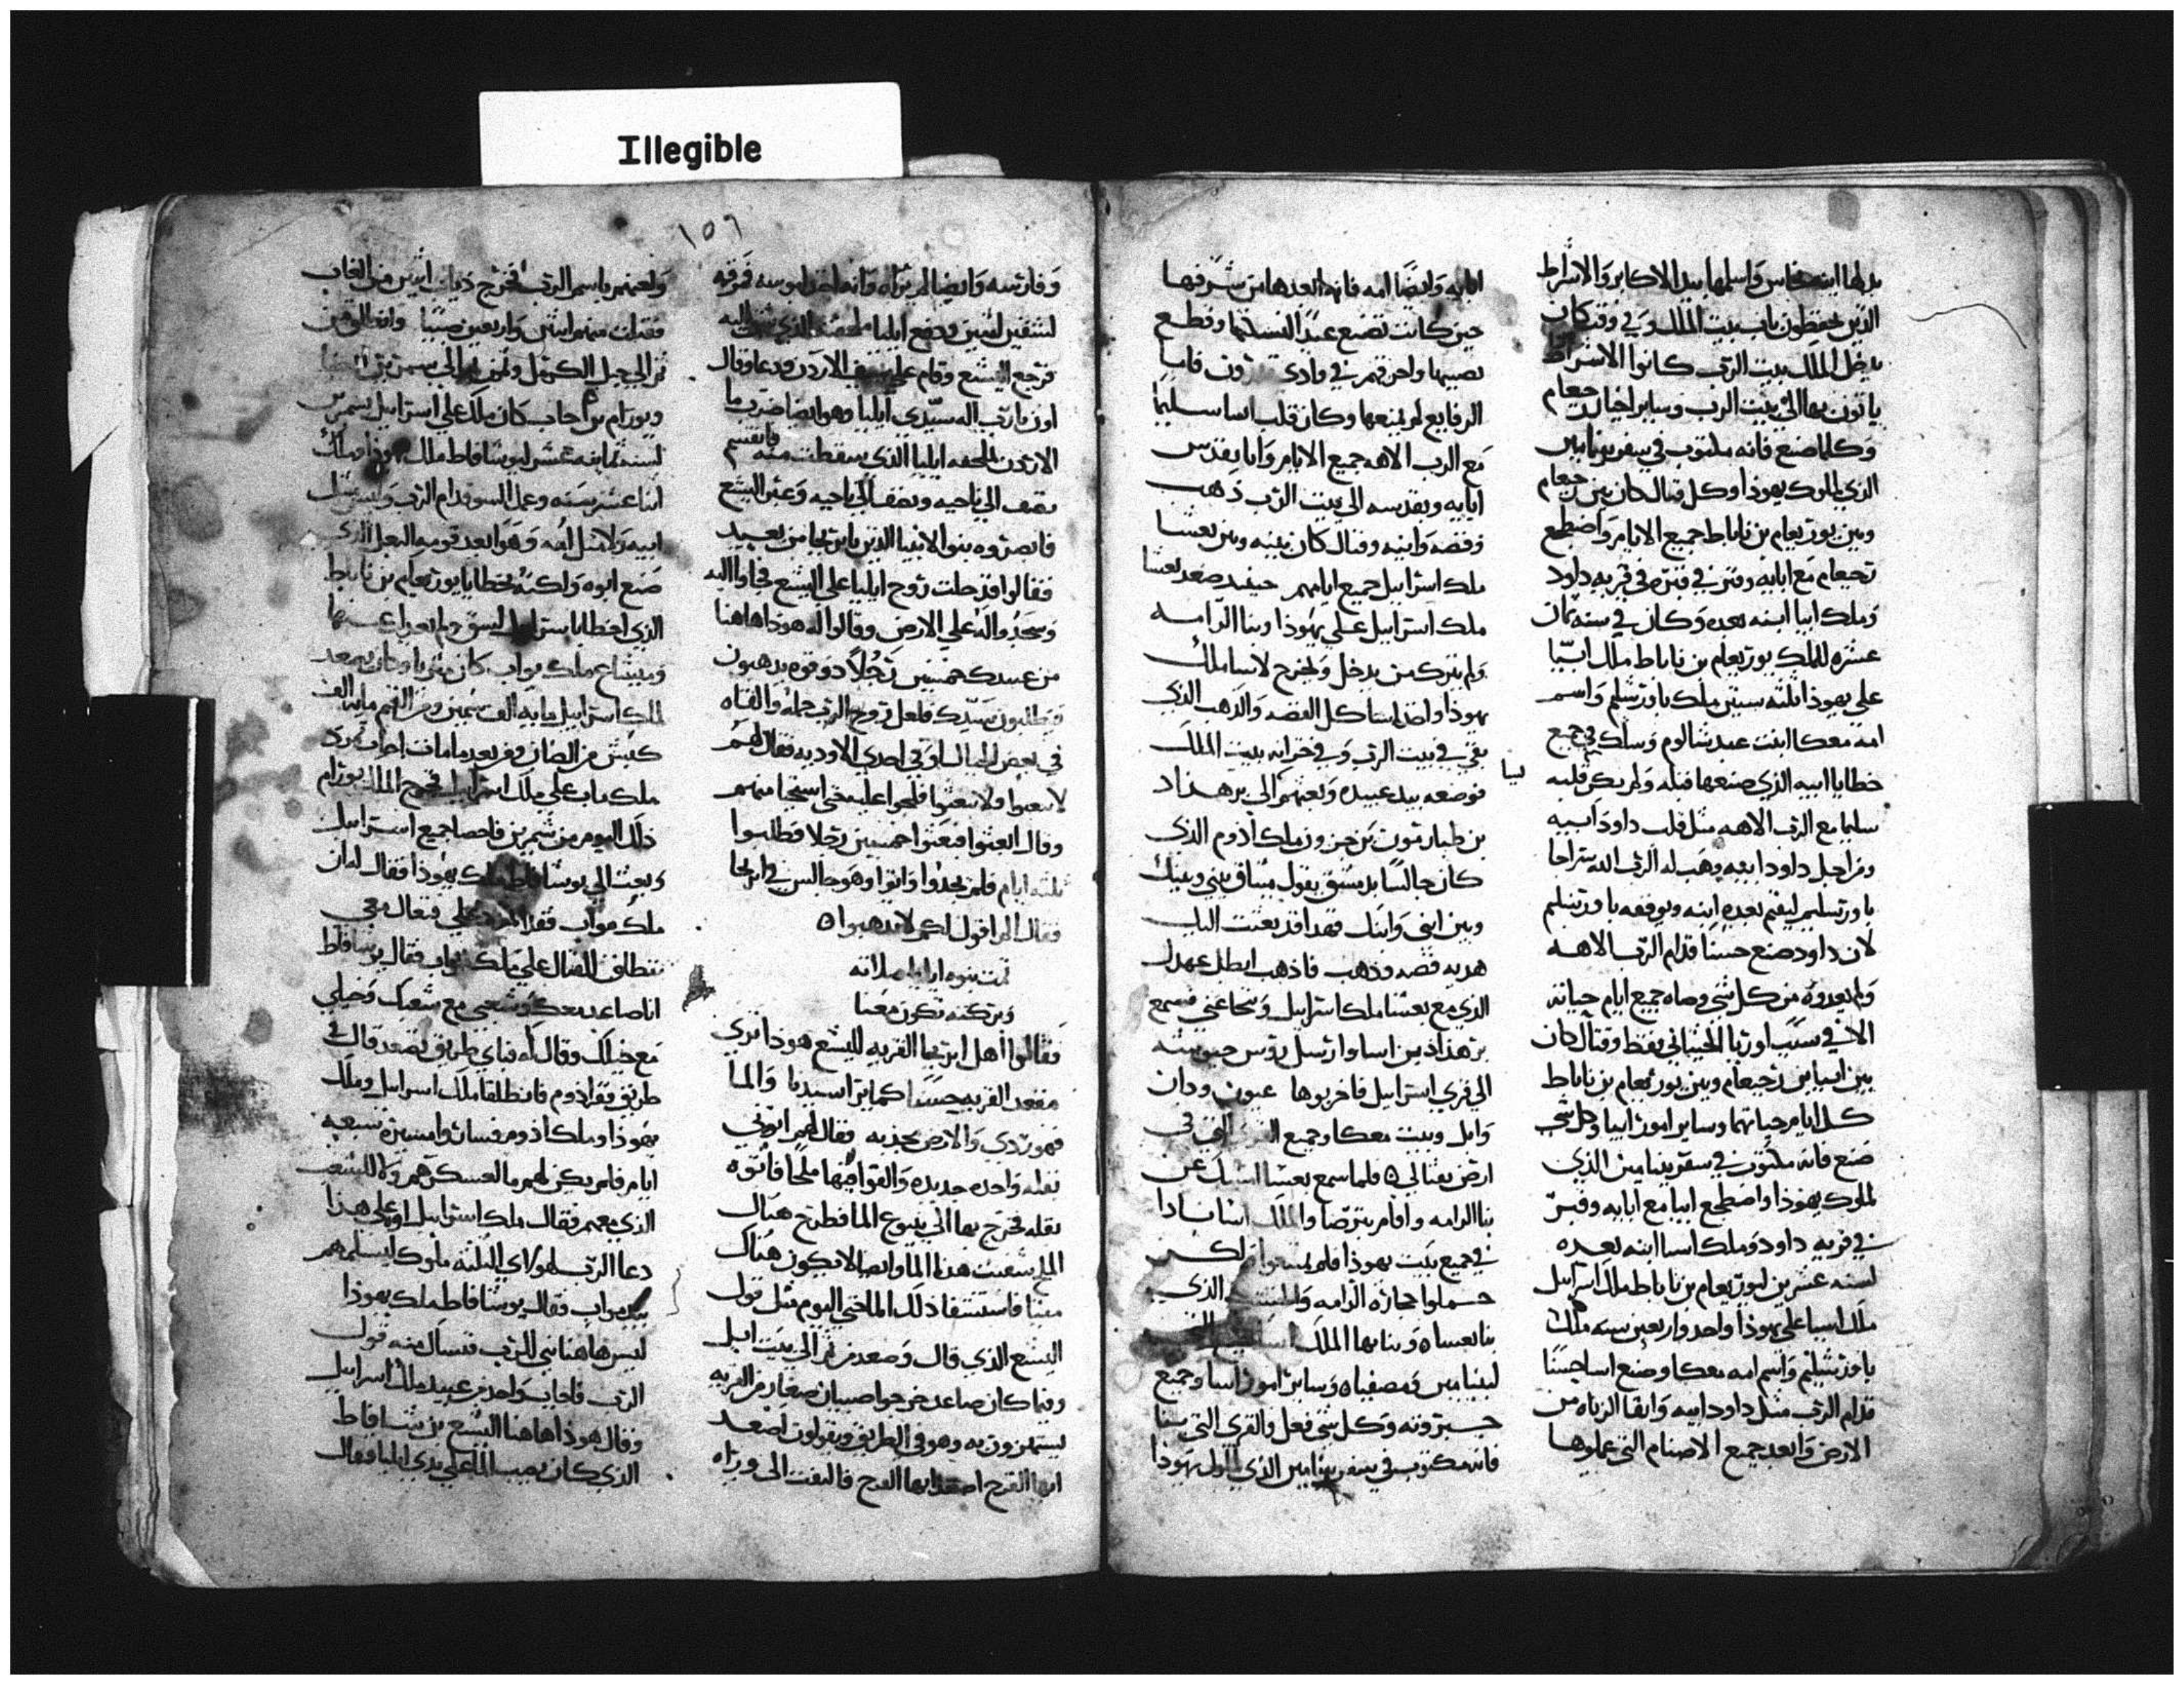 Illegible
١٥٦
بدلها ابنه نحاس واسلمها بيد الاكابر والاشراط
الذين يحفظون باب بيت الملك وفي وقت كان
يدخل الملك بيت الرب كانوا الاشراط
ياتون بها الى بيت الرب وساير اخبار رحبعام
وكلما صنع فانه مكتوب في سفر بنيامين
الذي لملوك يهوذا وكل قتال كان بين رحبعام
وبين يوربعام بن ناباط جميع الايام واضطجع
رحبعام مع ابايه وقبر في قبره في قريه داود
وملك ابيا ابنه بعده وكان في سنه ثمان
عشره للملك يوربعام بن ناباط ملك ابيا
على يهوذا ثلثه سنين ملك باورشليم واسم
امه معكا ابنت عبد شالوم وسلك في جميع
خطايا ابيه الذي صنعها قبله ولم يكن قلبه
سليما مع الرب الاهه مثل قلب داود ابيه
ومن اجل داود ابيه وهب له الرب الله سراجا
باورشليم ليقيم بعده ابنه ويوقفه باورشليم
لان داود صنع حسنا قدام الرب الاهه
ولم يعدوه من كل شي وصاه جميع ايام حياته
الا في سبب اوريا الحيثاني فقط وقتال كان
بين ابيا بن رحبعام وبين يوربعام بن ناباط
كل ايام حياتهما وساير امور ابيا وكل شي
صنع فانه مكتوب في سفر بنيامين الذي
لملوك يهوذا واضطجع ابيا مع ابايه وقبر
في قريه داود وملك اسا ابنه بعده
لسنه عشرين ليوربعام بن ناباط ملك اسرايل
ملك اسا على يهوذا واحد واربعين سنه ملك
باورشليم واسم امه معكا وصنع اسا حسنا
قدام الرب مثل داود ابيه وانقا الزناه من
الارض وابعد جميع الاصنام التي عملوها
ابايه وايضا امه فانه ابعدها من شرفها
حين كانت تصنع عيدا لنسكها وقطع
نصيبها واحرقهم في وادي قدرون فاما
الرفايع لم يمنعها وكان قلب اسا سليما
مع الرب الاهه جميع الايام واتا بقدس
ابايه وبقدسه الى بيت الرب ذهب
وفضه وانيه وقتال كان بينه وبين بعشا
ملك اسراييل جميع ايامهم حينيد صعد بعشا
ملك اسراييل على يهوذا وبنا الرامه
ولم يترك من يدخل ويخرج لاسا ملك
يهوذا واخذ اسا كل الفضه والذهب الذي
بقي في بيت الرب وفي خزانه بيت الملك
فوضعه بيد عبيده وبعثهم الى برهداد
بن طبارمون بن حزون ملك ادوم الذي
كان جالسا بدمشق يقول ميثاق بيني وبينك
وبين ابي وابيك فهذا قد بعثت اليك
هديه فضه وذهب فاذهب ابطل عهدك
الذي مع بعشا ملك اسراييل ويتحا عني فسمع
برهداد من اسا وارسل رؤس جيوشه
الى قري اسراييل فاخربوها عيون ودان
وابل وبيت معكا وجميع
ارض نفتالي فلما سمع بعشا امسك عن
بنا الرامه واقام بترصا والملك اسا نادا
في جميع بيت يهوذا
حملوا حجاره الرامه والخشب الذي
بنا بعشا وبنا بها الملك اسا
لبنيامين ومصفيا وساير امور اسا وجميع
جبروته وكل شي فعل والقري التي بنا
فانه مكتوب في سفر بنيامين الذي لملوك يهوذا
لشقين اثنين ورفع ايليا
فرجع اليشع وقام على شف الاردن ودعا وقال
اون يا رب اله سيدي ايليا وهو ايضا ضرب ما
الاردن بملحفه ايليا الذي سقطت منه فانقسم
نصف الى ناحيه ونصف الى ناحيه وعبر اليشع
فابصروه بنوا الانبيا الذين باريحا من بعيد
فقالوا قد حلت روح ايليا على اليشع فجاوا اليه
وسجدوا له على الارض وقالوا له هوذا هاهنا
من عبيدك خمسين رجلا ذو قوه يذهبون
فيطلبون سيدك فلعل روح الرب حمله والقاه
في بعض الجبال او في احدي الاوديه فقال لهم
لا تبعثوا فلحوا عليه حتى استحا منهم
وقال ابعثوا فبعثوا خمسين رجلا فطلبوا
ثلثه ايام فلم يجدوا واتوا وهو جالس في اريحا
فقال الم اقول لكم لا تذهبوا
تمت نبوه ايليا
وبركته تكون معنا
فقالوا اهل اريحا القريه لليشع هوذا ترى
مقعد القريه حسنا كما يرا سيدنا والما
فهو ردي والارض مجدبه فقال لهم اتوني
بقله واحده جديده والقوا فيها ملحا فاتوه
بقله فخرج بها الى ينبوع الما فطرح هناك
الملح شفيت هذا الما وايضا لا يكون هناك
ميتا فاستشفا ذلك الما حتى اليوم مثل قول
اليشع الذي قال وصعد من ثم الى بيت ايل
وفيما كان صاعد خرجوا صبيان صغار من القريه
يستهزون به وهو في الطريق ويقولون اصعد
ايها القرح اصعد ايها القرح فالتفت الى وراه
ولعنهم باسم الرب فخرج دبات اثنين من الغاب
فقتلت منهم اثنين واربعين صبيا
ثم الى جبل الكرمل ومن
ويورام بن احاب كان ملك على اسراييل بسمرين
لسنه ثمانيه عشر ليوشافاط ملك يهوذا وملك
اثنا عشر سنه وعمل السو قدام الرب وليس مثل
ابيه ولا مثل امه وهو ابعد قومه البعل الذي
صنع ابوه ولكنه بخطايا يوربعام بن ناباط
الذي اخطا باسراييل لسق ولم يعدوا عنها
وميشاع ملك مواب كان
لملك اسراييل مايه الف سمين ومن الغنم مايه الف
كبش من الضان ومن بعد ما مات احاب مرد
ملك ماب على ملك اسراييل فخرج الملك يورام
ذلك اليوم من شمرين فاحصا جميع اسراييل
وبعث الى يوشافاط ملك يهوذا فقال له ان
ملك مواب فقد تمرد علي فتعال معي
ننطلق للقتال على ملك مواب فقال يوشافاط
انا صاعد معك وشعبي مع شعبك وخيلي
مع خيلك وقال له فباي طريق نصعد قال في
طريق قفر ادوم فانطلقا ملك اسراييل وملك
يهوذا وملك ادوم فساروا مسيره سبعه
ايام فلم يكن لهم ما لعسكرهم ولا للشعب
الذي معهم فقال ملك اسراييل اوه على هذا
دعا الرب لهولاي الثلثه ملوك ليسلمهم
بيد مواب فقال يوشافاط ملك يهوذا
ليس هاهنا نبي للرب فنسال منه قول
الرب فاجاب واحد من عبيد ملك اسراييل
وقال هوذا هاهنا اليشع بن شافاط
الذي كان يصب الما على يدي ايليا فقال